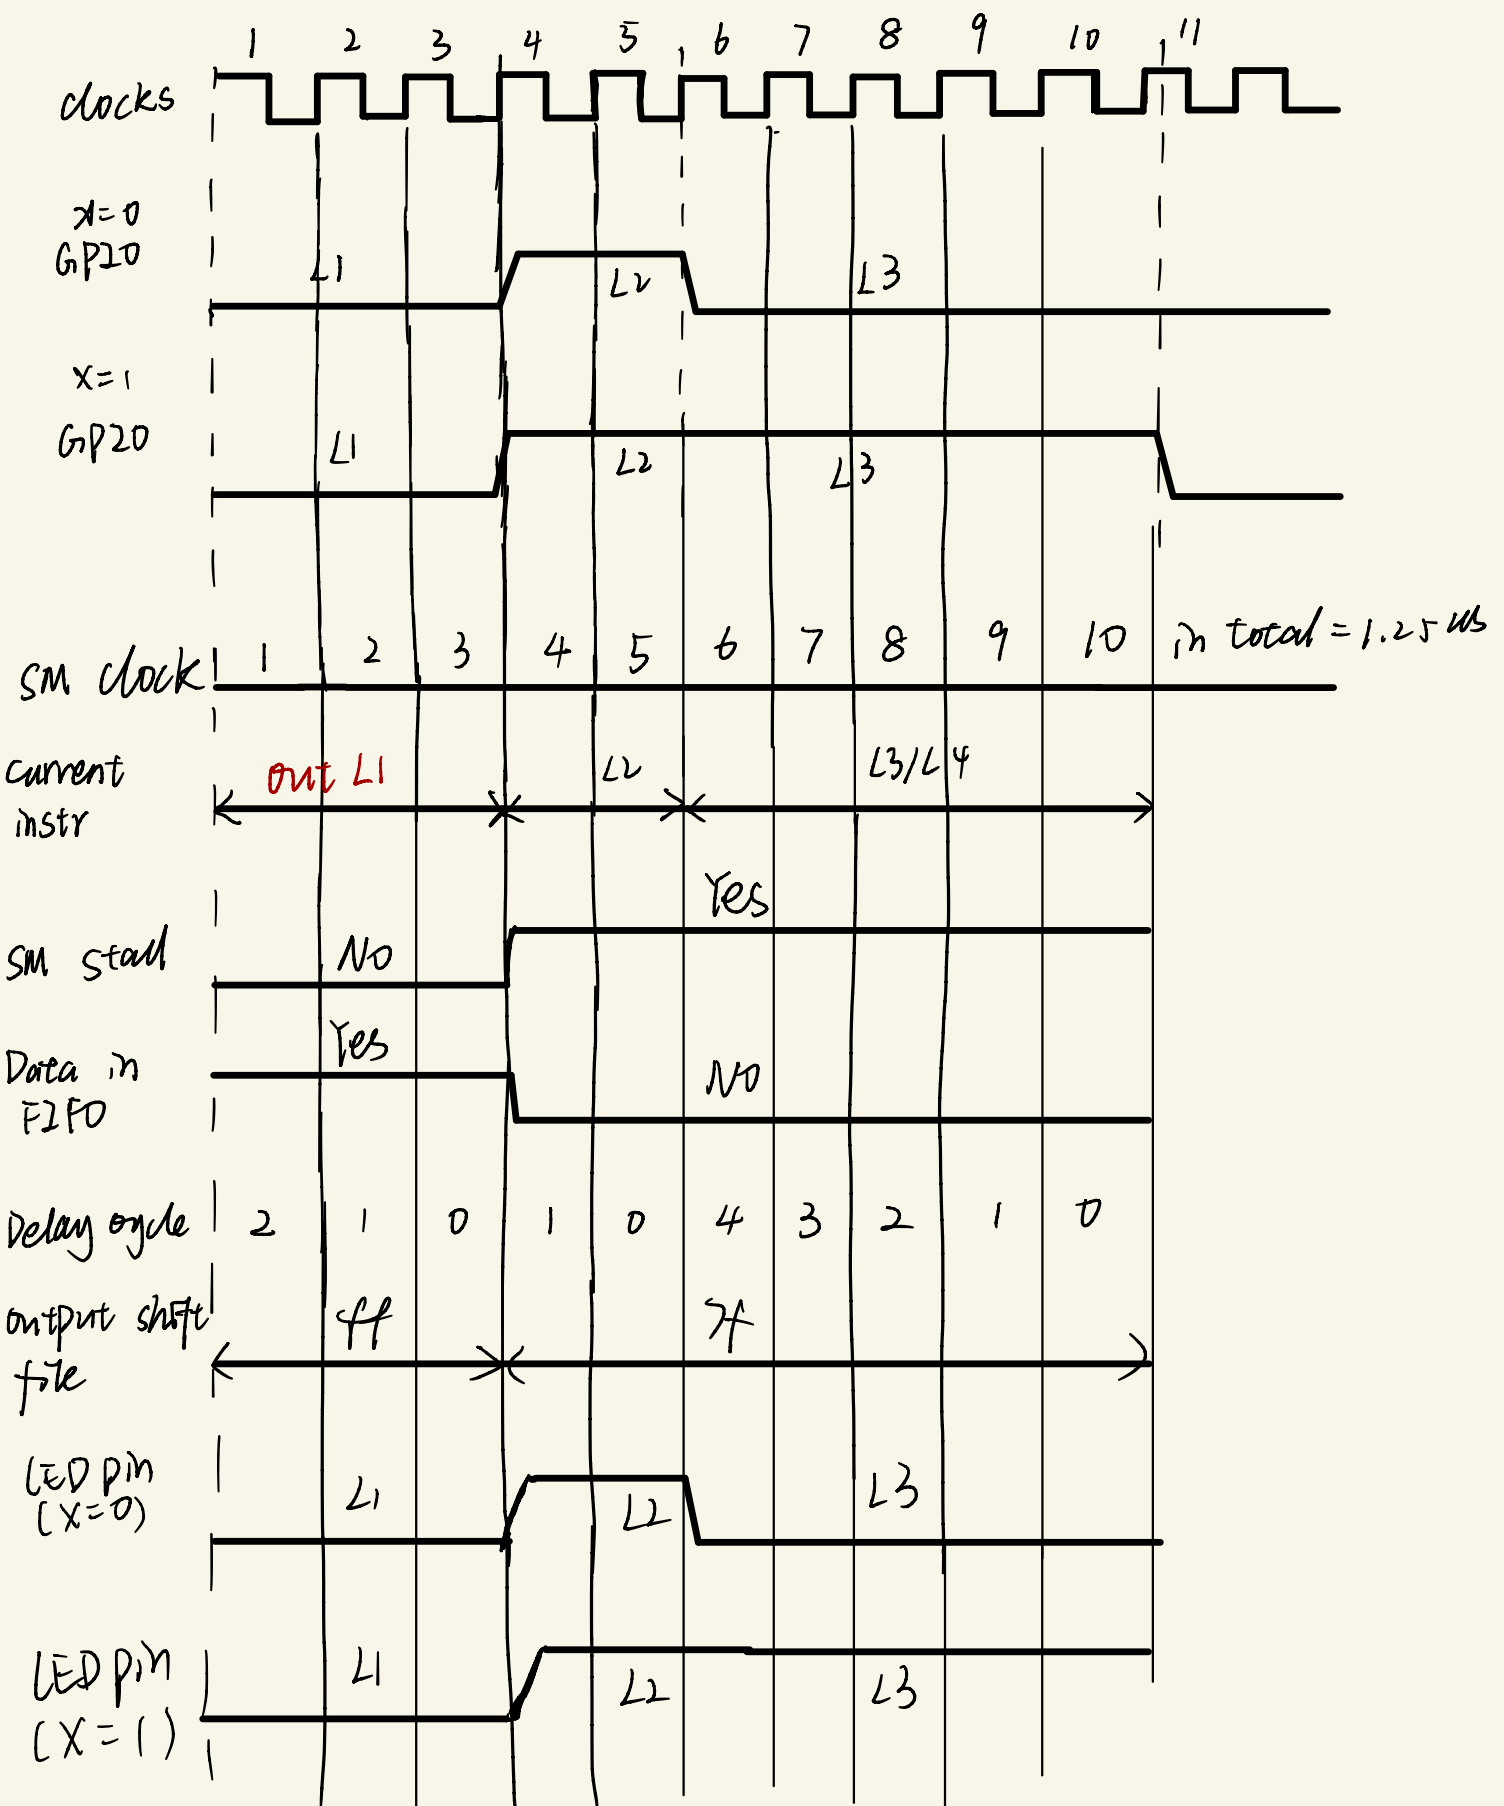 1 2 3 4 5 6 7 8 9 10 11
clocks
x=0
GP20
L1 L2 L3
x=1
GP20
L1 L2 L3
SM clock 1 2 3 4 5 6 7 8 9 10 in total = 1.25 us
current
instr
out L1 L2 L3/L4
SM stall
No Yes
Data in
FIFO
Yes No
Delay cycle 2 1 0 1 0 4 3 2 1 0
output shift
file
ff 7f
LED pin
(x=0)
L1 L2 L3
LED pin
(x=1)
L1 L2 L3